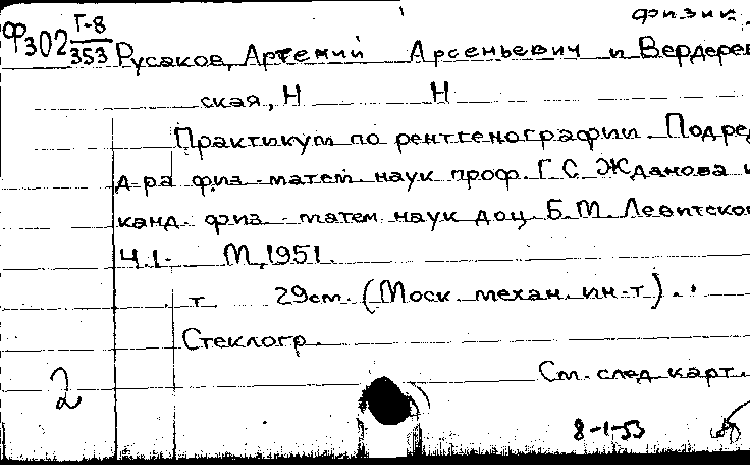 физик.
Ф302 Г-8
353
Русаков, Артемий Арсеньевич и Вердерев
ская, Н Н
Практикум по рентгенографии. Под ред
д-ра физ.-матем. наук проф. Г. С. Жданова и
канд. физ.-матем наук доц. Б. М. Левитског
Ч.1. М, 1951.
т 29см. (Моск. механ. ин-т)..
Стеклогр.
См. след. карт.
2
8-1-53